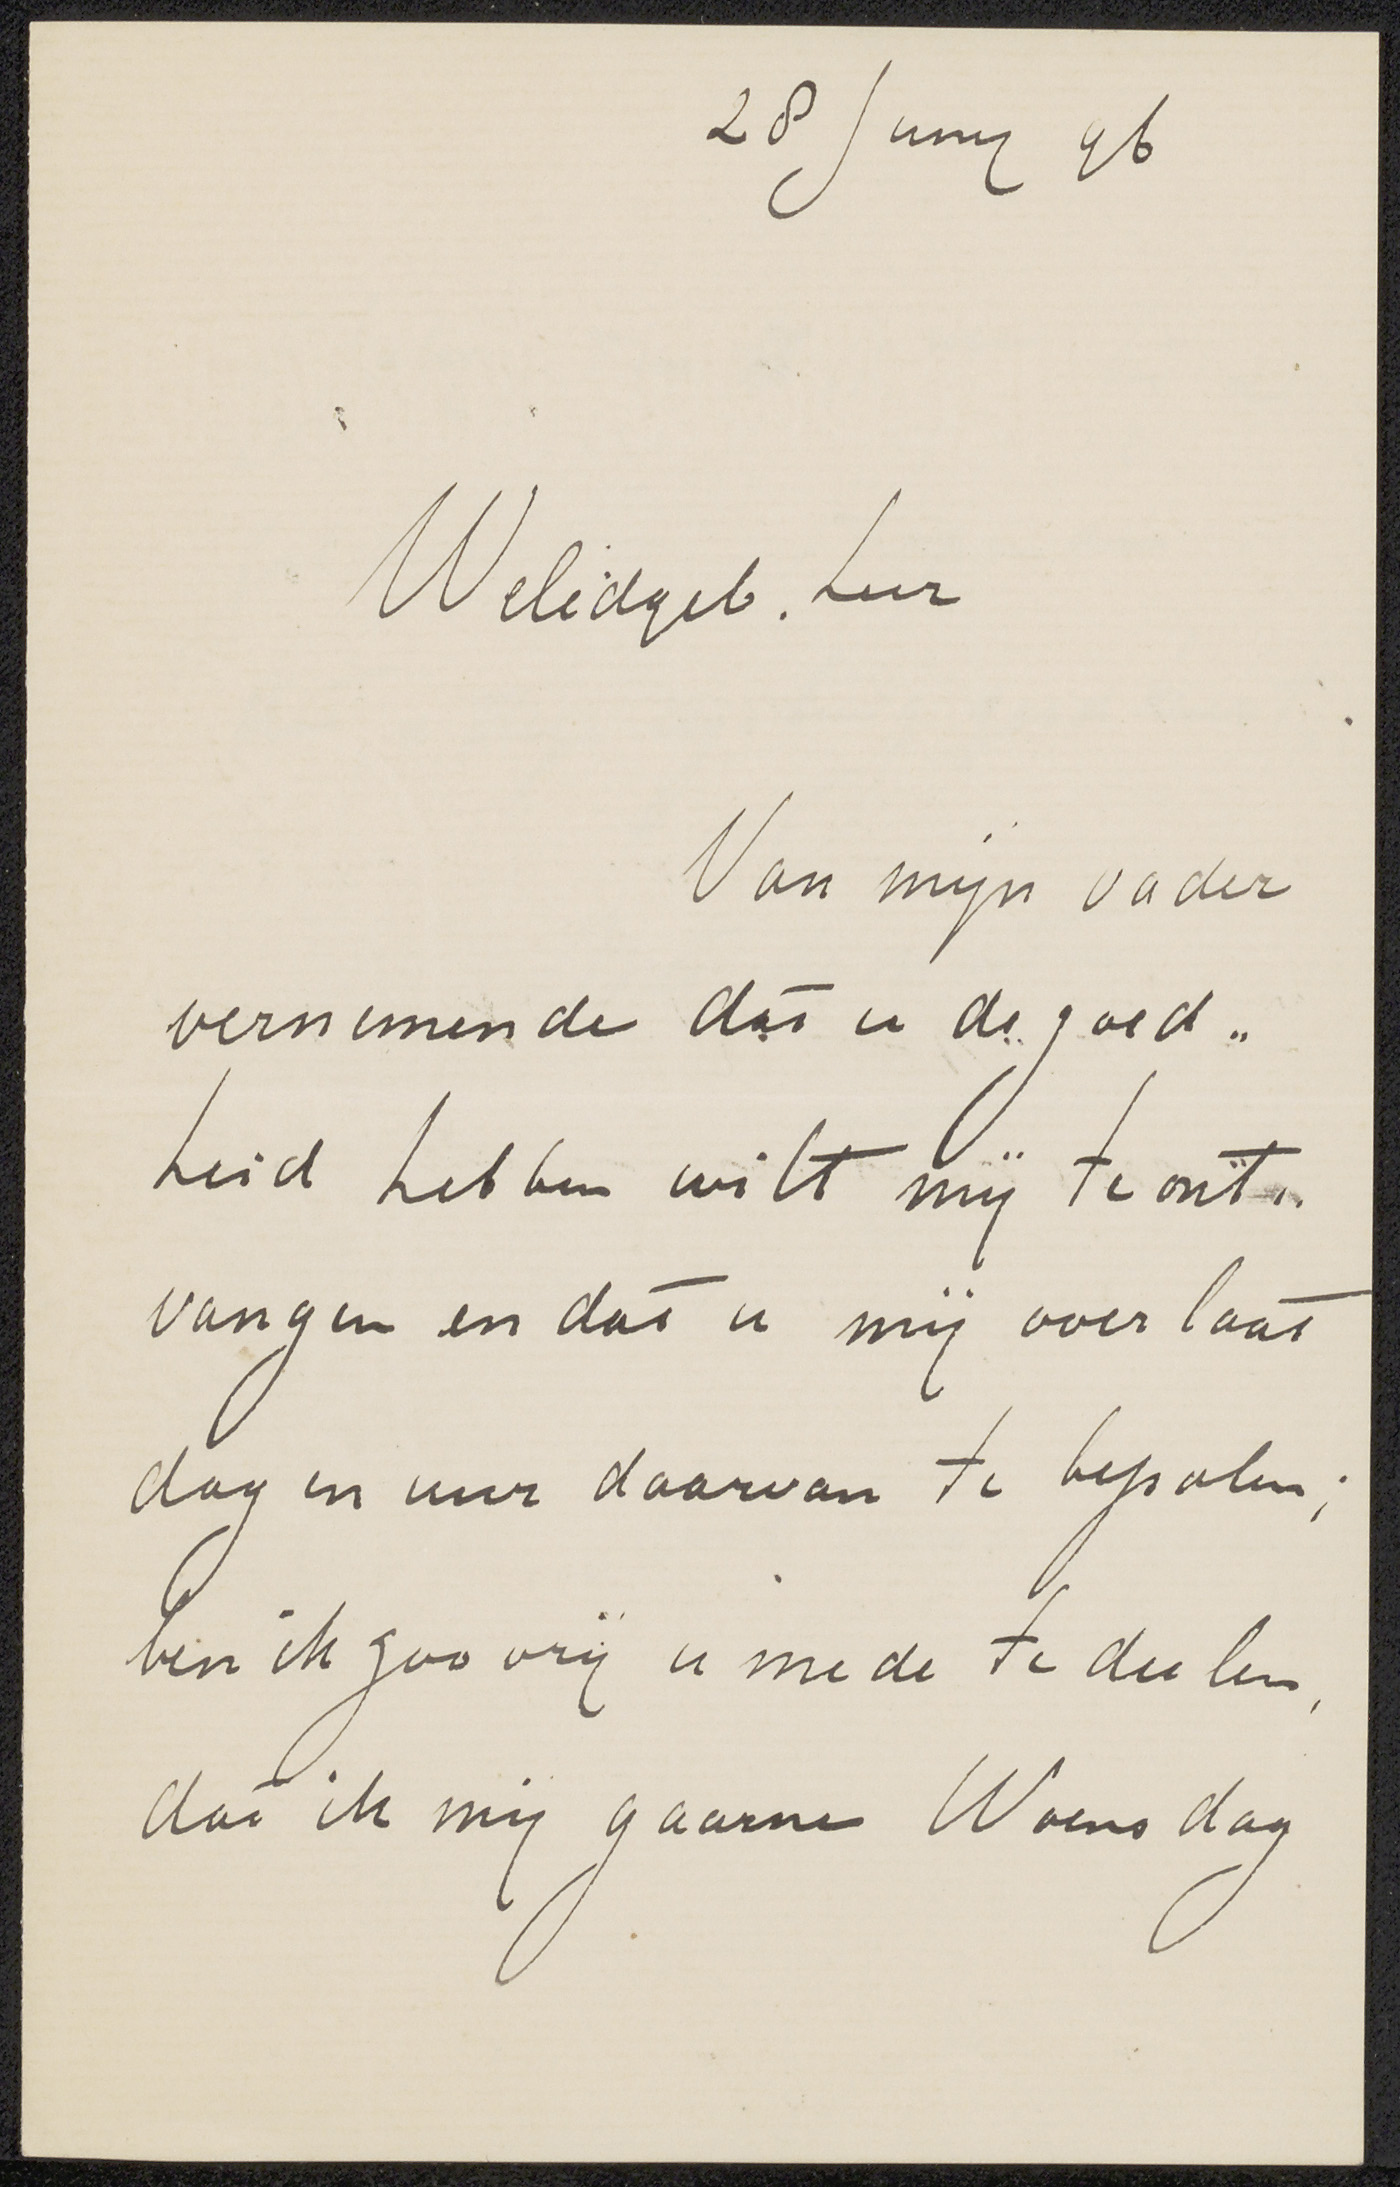 28 Juny 96
Weledgeb. heer
Van mijn vader
vernemende dat u de goed„
heid hebben wilt mij te ont„
vangen en dat u mij over laat
dag en uur daarvan te bepalen;
ben ik zoo vrij u mede te deelen,
dat ik mij gaarne Woensdag